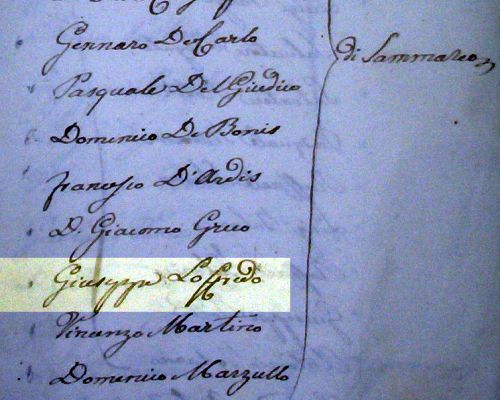 Gennaro De Carlo
di Sammarco
Pasquale Del Giudice
Domenico De Bonis
francesco D'Ardis
D. Giacomo Greco
Giuseppe Loffredo
Vincenzo Martino
Domenico Marzullo